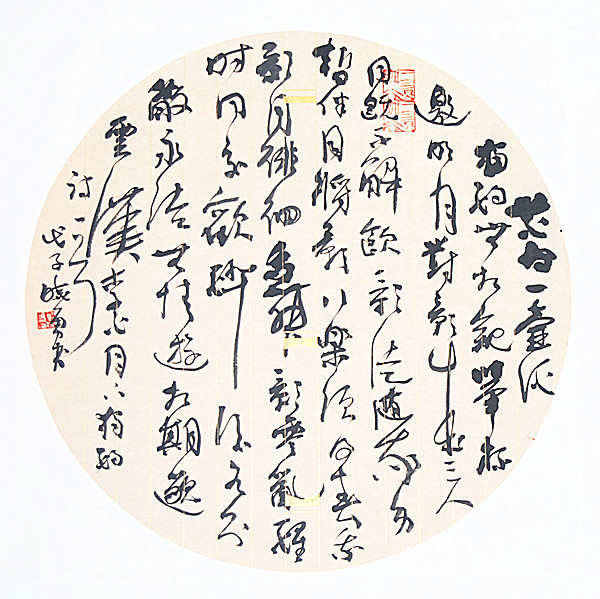 花間一壺酒
獨酌無相親舉杯
邀明月對影成三人
月既不解飲影徒隨我身
暫伴月將影行樂須及春我
歌月徘徊我舞影零亂醒
時同交歡醉後各分
散永結無情遊相期邈
雲漢李白月下獨酌
詩一首
戊子